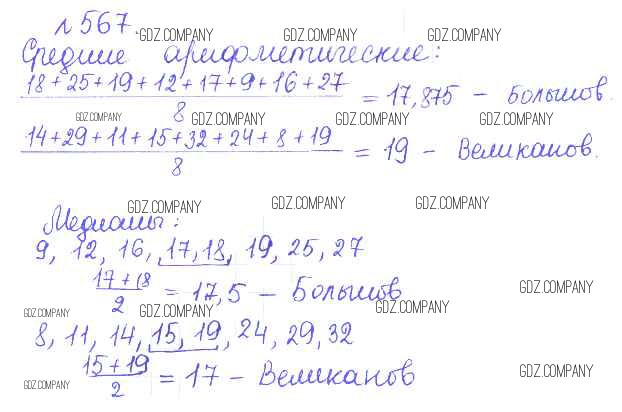 №567. GDZ.COMPANY GDZ.COMPANY GDZ.COMPANY
Средние арифметические:
18+25+19+12+17+9+16+27
8
= 17,875 – Большов.
GDZ.COMPANY GDZ.COMPANY GDZ.COMPANY GDZ.COMPANY
14+29+11+15+32+24+8+19
8
= 19 – Великанов.
GDZ.COMPANY GDZ.COMPANY GDZ.COMPANY
Медианы:
9, 12, 16, 17,18, 19, 25, 27
17+18
2
= 17,5 – Большов
GDZ.COMPANY
GDZ.COMPANY GDZ.COMPANY GDZ.COMPANY
8, 11, 14, 15, 19, 24, 29, 32
15+19
2
= 17 – Великанов
GDZ.COMPANY GDZ.COMPANY